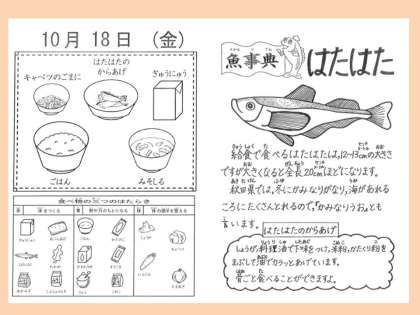 10月 18日 (金)
はたはたの
からあげ
キャベツのごまに
ぎゅうにゅう
ごはん
みそしる
食べ物の三つのはたらき
魚事典
はたはた
給食で食べるはたはたは、12~13cmの大きさ
ですが大きくなると全長20cmほどになります。
秋田県では、冬にかみなりがなり、海があれる
ころにたくさんとれるので、「かみなりうお」とも
言います。
はたはたのからあげ
しょうが、料理酒で下味をつけ、米粉、かたくり粉を
まぶして油でカラッとあげています。
骨ごと食べることができますよ。